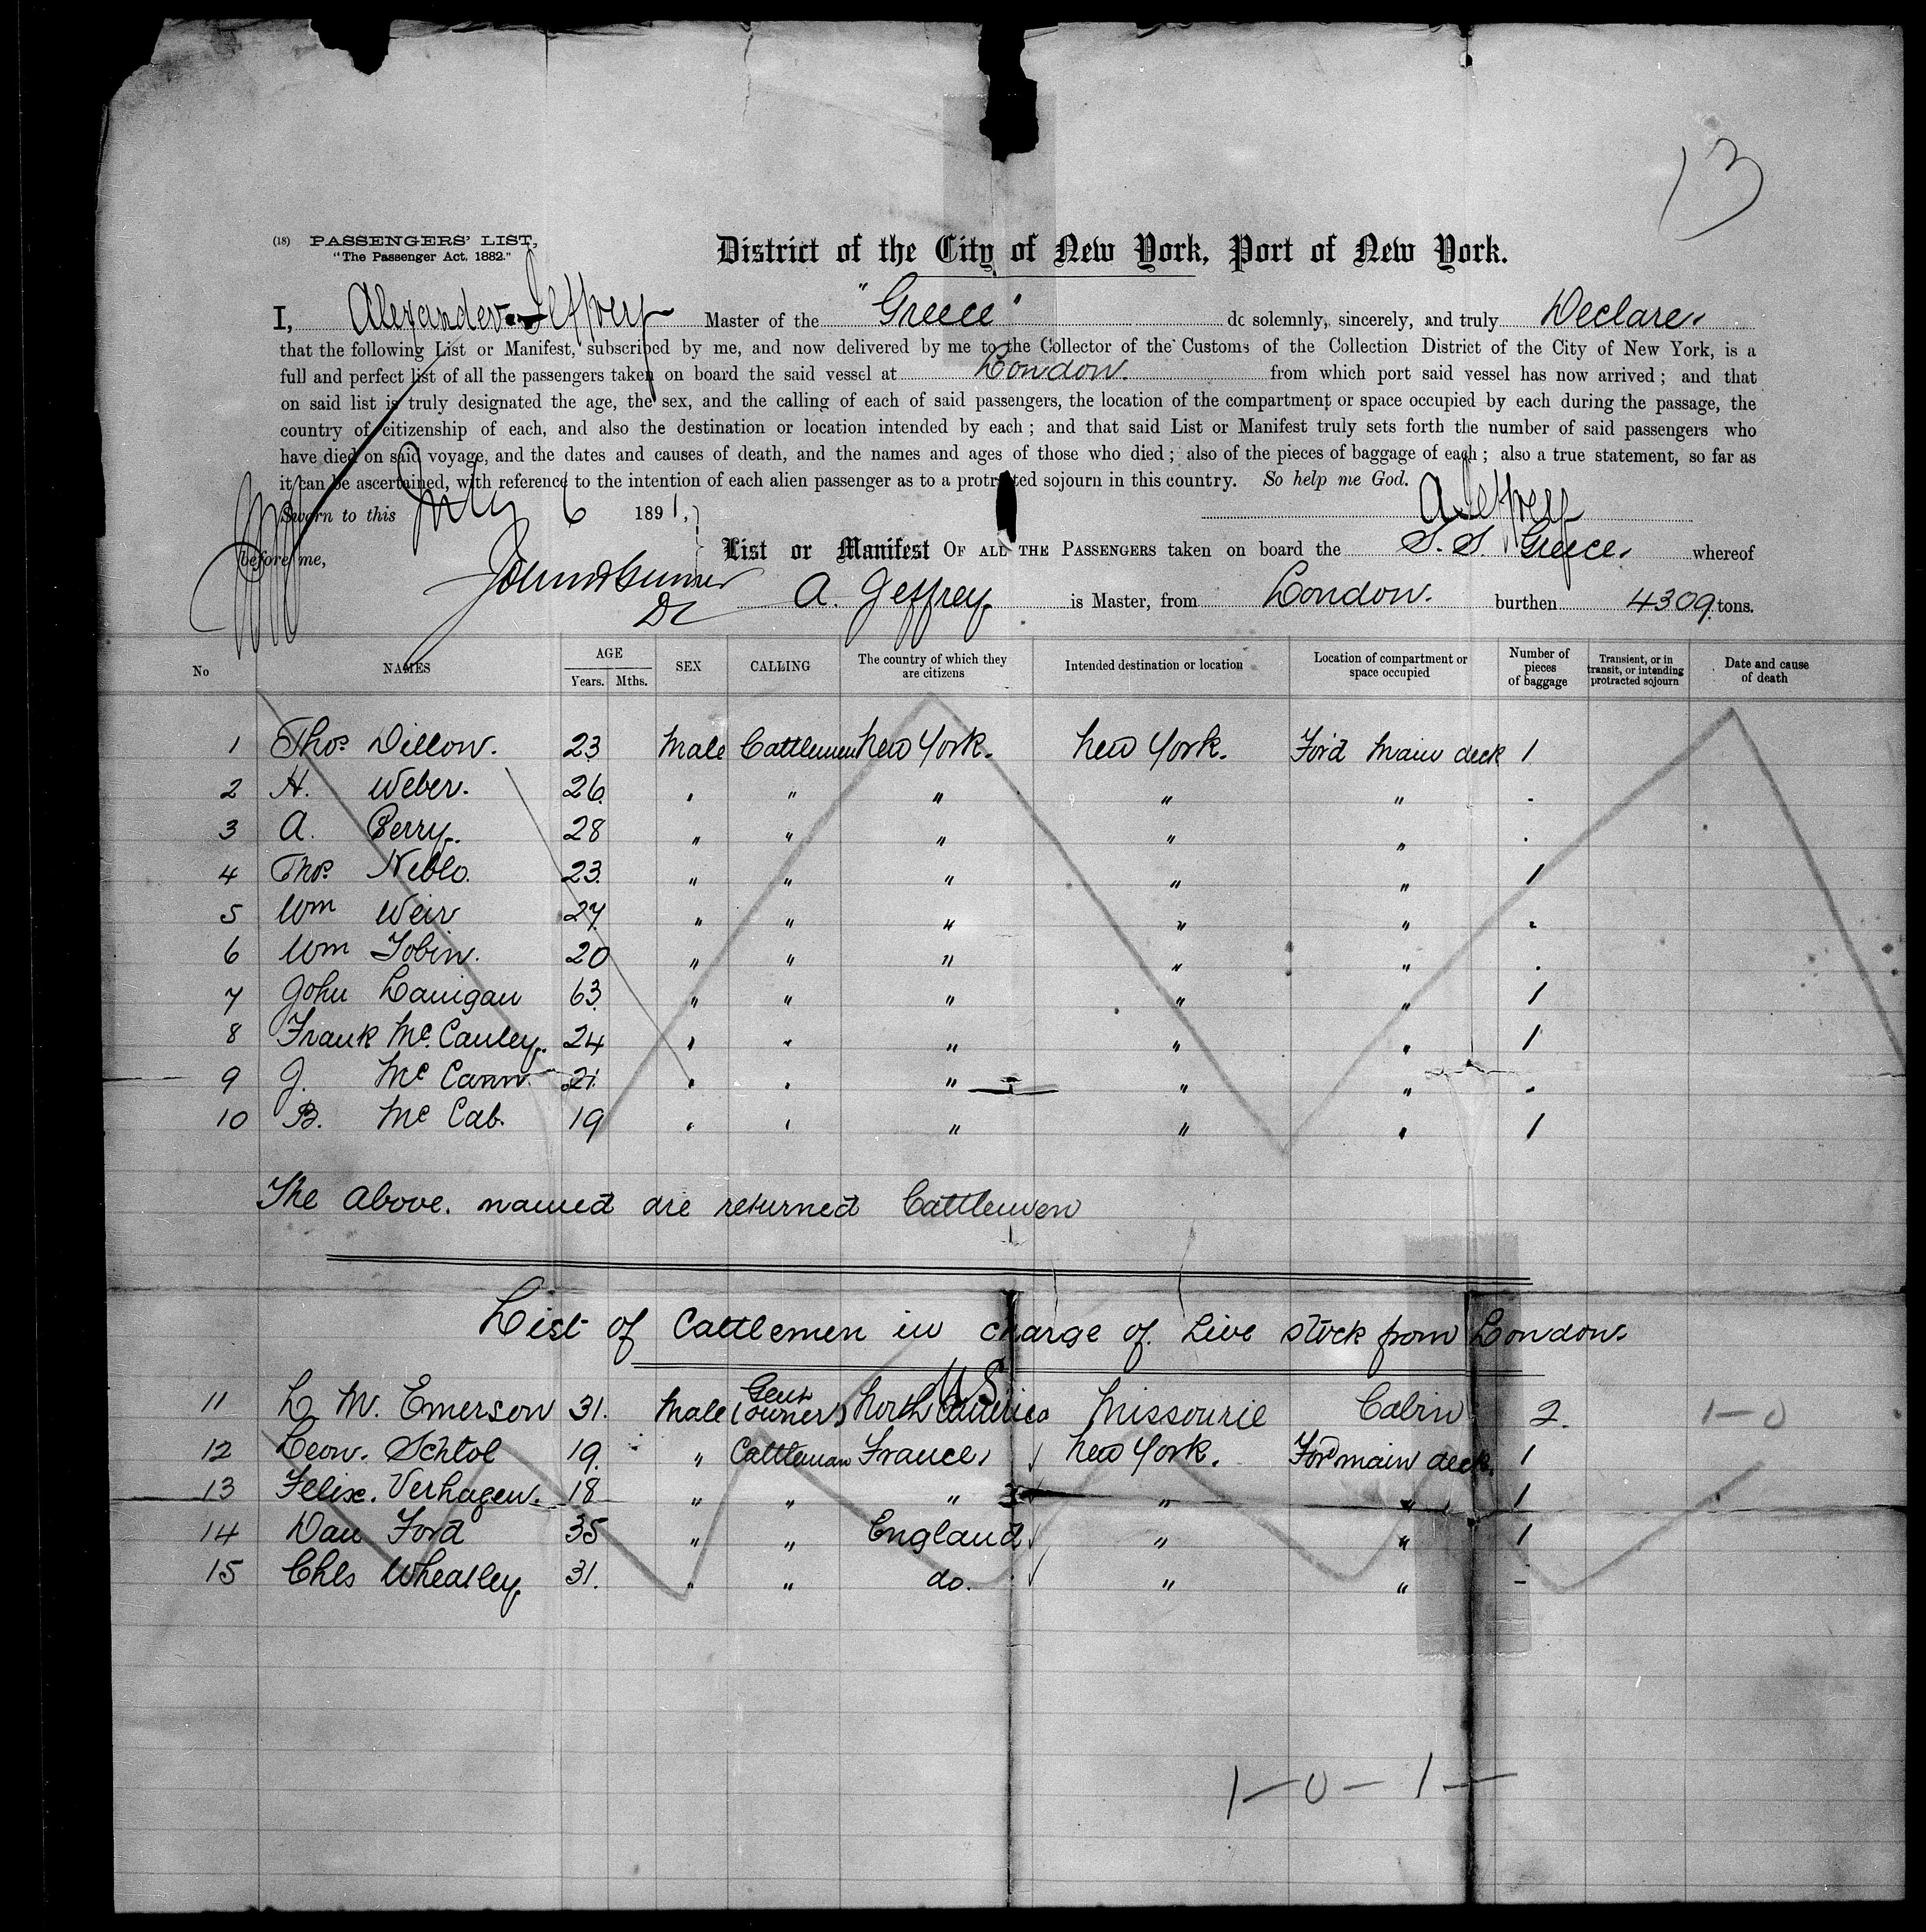 13
(18) PASSENGERS' LIST,
"The Passenger Act, 1882."
District of the City of New York, Port of New York.
I, Alexander Jeffrey Master of the "Greece" do solemnly, sincerely, and truly Declare
that the following List or Manifest, subscribed by me, and now delivered by me to the Collector of the Customs of the Collection District of the City of New York, is a
full and perfect list of all the passengers taken on board the said vessel at London. from which port said vessel has now arrived; and that
on said list is truly designated the age, the sex, and the calling of each of said passengers, the location of the compartment or space occupied by each during the passage, the
country of citizenship of each, and also the destination or location intended by each; and that said List or Manifest truly sets forth the number of said passengers who
have died on said voyage, and the dates and causes of death, and the names and ages of those who died; also of the pieces of baggage of each; also a true statement, so far as
it can be ascertained, with reference to the intention of each alien passenger as to a protracted sojourn in this country. So help me God.
Sworn to this July 6 1891, A Jeffrey
before me,
List or Manifest OF ALL THE PASSENGERS taken on board the S. S. Greece. whereof
A. Jeffrey is Master, from London. burthen 4309 tons.
No NAMES AGE Years. Mths. SEX CALLING The country of which they are citizens Intended destination or location Location of compartment or space occupied Number of pieces of baggage Transient, or in transit, or intending protracted sojourn Date and cause of death
1 Thos Dillon. 23 Male Cattlemen New York. New York. For'd Main deck 1
2 H. Weber. 26 " " " " " "
3 A. Berry. 28 " " " " " "
4 Thos. Neblo. 23 " " " " " 1
5 Wm Weir 27 " " " " " "
6 Wm Tobin. 20 " " " " " "
7 John Lanigan 63 " " " " " 1
8 Frank McCauley. 24 " " " " " 1
9 J. Mc Cann. 21 " " " " " "
10 B. Mc Cab. 19 " " " " " 1
The above. named are returned Cattlemen
List of Cattlemen in charge of Live stock from London.
US
11 L M. Emerson 31. Male Gent (owner) North America Missourie Cabin 2. 1-0
12 Leon. Schtol 19. " Cattleman France, New York. For'd main deck. 1
13 Felix. Verhagen. 18 " " " " " 1
14 Dan Ford 35 " " England " " 1
15 Chls Wheatley 31. " " do. " " -
1-0-1-